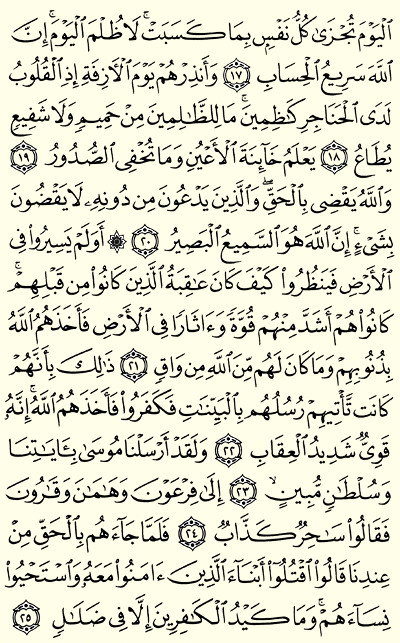 ٱلۡيَوۡمَ تُجۡزَىٰ كُلُّ نَفۡسِۭ بِمَا كَسَبَتۡۚ لَا ظُلۡمَ ٱلۡيَوۡمَۚ إِنَّ
ٱللَّهَ سَرِيعُ ٱلۡحِسَابِ ١٧ وَأَنذِرۡهُمۡ يَوۡمَ ٱلۡأٓزِفَةِ إِذِ ٱلۡقُلُوبُ
لَدَى ٱلۡحَنَاجِرِ كَٰظِمِينَۚ مَا لِلظَّٰلِمِينَ مِنۡ حَمِيمٖ وَلَا شَفِيعٖ
يُطَاعُ ١٨ يَعۡلَمُ خَآئِنَةَ ٱلۡأَعۡيُنِ وَمَا تُخۡفِي ٱلصُّدُورُ ١٩
وَٱللَّهُ يَقۡضِي بِٱلۡحَقِّۖ وَٱلَّذِينَ يَدۡعُونَ مِن دُونِهِۦ لَا يَقۡضُونَ
بِشَيۡءٍۗ إِنَّ ٱللَّهَ هُوَ ٱلسَّمِيعُ ٱلۡبَصِيرُ ٢٠ ۞ أَوَلَمۡ يَسِيرُواْ فِي
ٱلۡأَرۡضِ فَيَنظُرُواْ كَيۡفَ كَانَ عَٰقِبَةُ ٱلَّذِينَ كَانُواْ مِن قَبۡلِهِمۡۚ
كَانُواْ هُمۡ أَشَدَّ مِنۡهُمۡ قُوَّةٗ وَءَاثَارٗا فِي ٱلۡأَرۡضِ فَأَخَذَهُمُ ٱللَّهُ
بِذُنُوبِهِمۡ وَمَا كَانَ لَهُم مِّنَ ٱللَّهِ مِن وَاقٖ ٢١ ذَٰلِكَ بِأَنَّهُمۡ
كَانَت تَّأۡتِيهِمۡ رُسُلُهُم بِٱلۡبَيِّنَٰتِ فَكَفَرُواْ فَأَخَذَهُمُ ٱللَّهُۚ إِنَّهُۥ
قَوِيّٞ شَدِيدُ ٱلۡعِقَابِ ٢٢ وَلَقَدۡ أَرۡسَلۡنَا مُوسَىٰ بِـَٔايَٰتِنَا
وَسُلۡطَٰنٖ مُّبِينٍ ٢٣ إِلَىٰ فِرۡعَوۡنَ وَهَٰمَٰنَ وَقَٰرُونَ
فَقَالُواْ سَٰحِرٞ كَذَّابٞ ٢٤ فَلَمَّا جَآءَهُم بِٱلۡحَقِّ مِنۡ
عِندِنَا قَالُواْ ٱقۡتُلُوٓاْ أَبۡنَآءَ ٱلَّذِينَ ءَامَنُواْ مَعَهُۥ وَٱسۡتَحۡيُواْ
نِسَآءَهُمۡۚ وَمَا كَيۡدُ ٱلۡكَٰفِرِينَ إِلَّا فِي ضَلَٰلٖ ٢٥